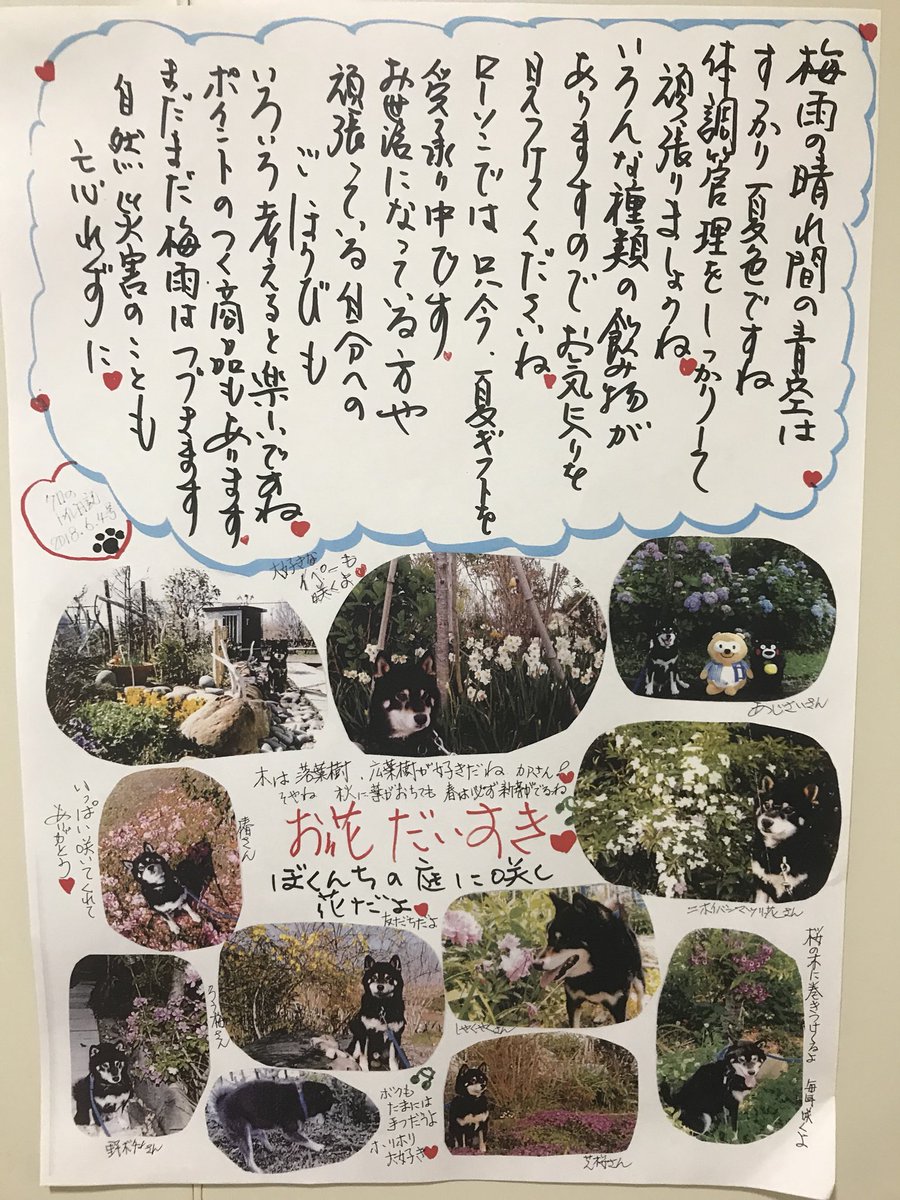 梅雨の晴れ間の青空は
すっかり夏色ですね
体調管理をしっかりして
頑張りましょうね
いろんな種類の飲み物が
ありますのでお気に入りを
見つけてくださいね
ローソンでは只今、夏ギフトを
受承り中です
お世話になっている方や
頑張っている自分への
ごほうびも
いろいろ考えると楽しいですね
ポイントのつく商品もあります
まだまだ梅雨はつづきます
自然災害のことも
忘れずに
2018.6.4号
大好きな
イペーも
咲くよ
あじさいさん
木は落葉樹、広葉樹が好きだね カアさん
そやね 秋に葉がおちても 春は必ず新芽がでるね
お花だいすき
ぼくんちの庭に咲く
花だよ
友だちだよ
いっぱい咲いてくれて
ありがとう
椿さん
ニオイバンマツリ花さん
しゃくやくさん
桜の木に巻きつけてるよ 毎年咲くよ
野ボタンさん
ボクも
たまには
手つだうよ
ホリホリ
大好き
芝桜さん